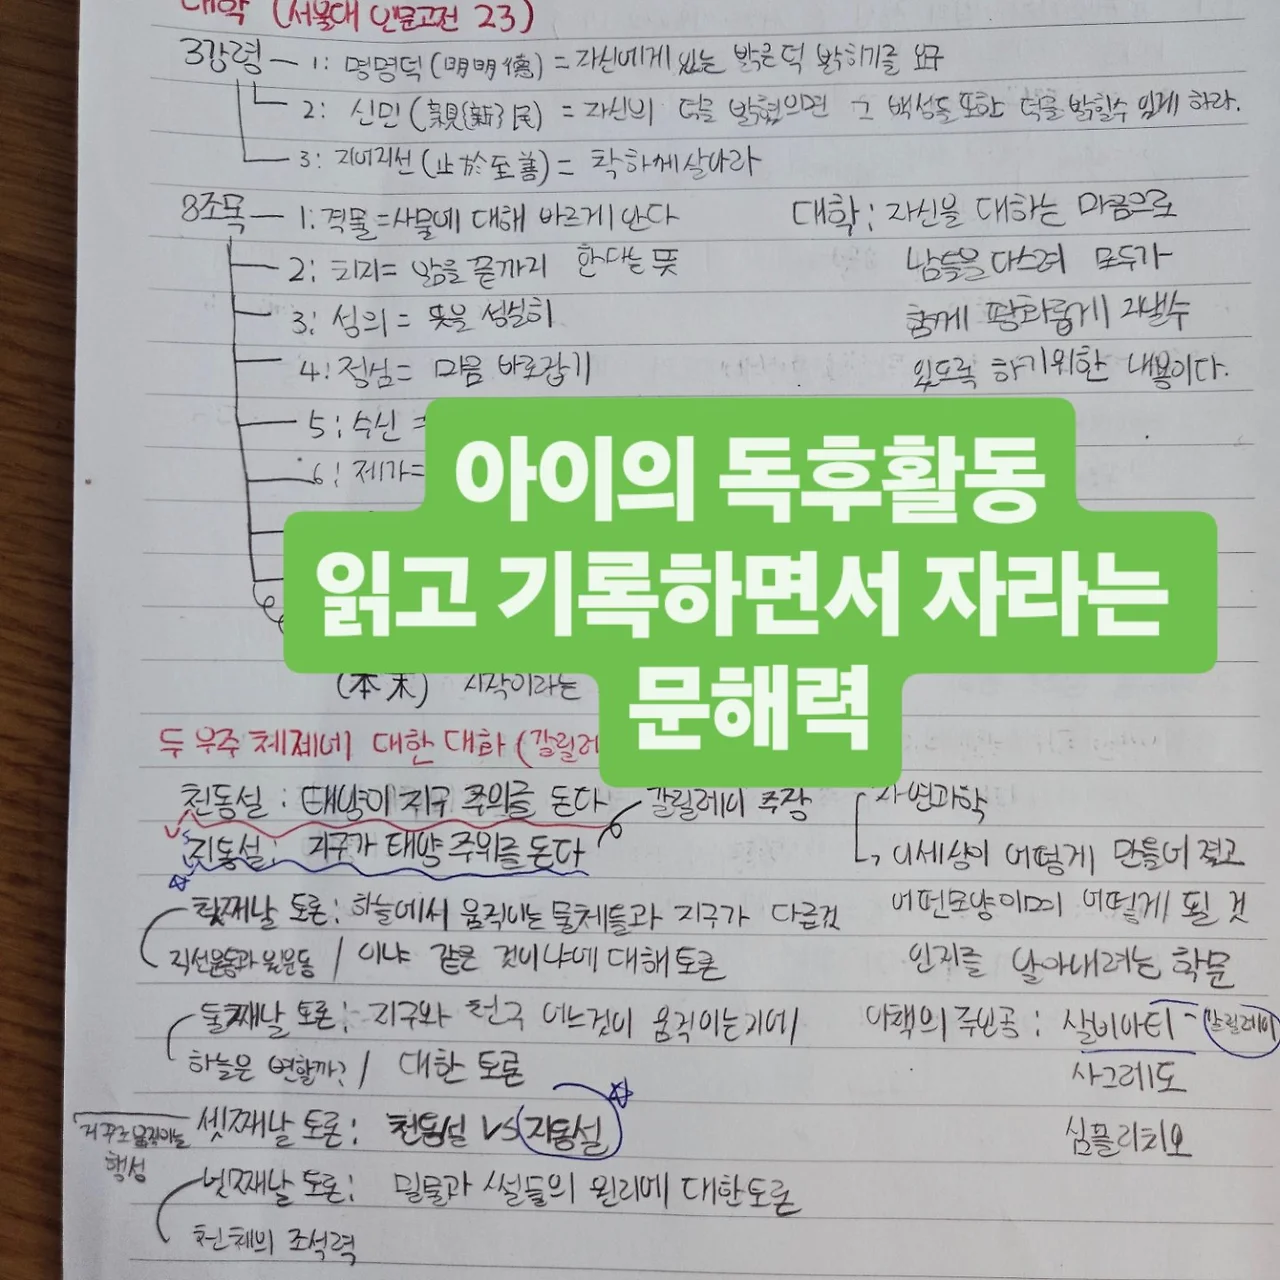 대학 (서울대 인문고전 23)
3강령 — 1: 명명덕(明明德) = 자신에게 있는 밝은덕 밝히기를 요구
2: 신민(親{新}民) = 자신의 덕을 밝혔으면 그 백성들 또한 덕을 밝힐수 있게 하라.
3: 지어지선(止於至善) = 착하게살아라
8조목 — 1: 격물=사물에 대해 바르게 안다
2: 치지= 앎을 끝까지 한다는 뜻
3: 성의= 뜻을 성실히
4: 정심= 마음 바로잡기
5: 수신 =
6: 제가=
대학: 자신을 대하는 마음으로
남들을 다스려 모두가
함께 평화롭게 지낼수
있도록 하기위한 내용이다.
아이의 독후활동
읽고 기록하면서 자라는
문해력
(本末) 시작이라는
두 우주 체제에 대한 대화 (갈릴레
천동설: 태양이 지구 주위를 돈다
갈릴레이 주장
지동설: 지구가 태양 주위를 돈다
첫째날 토론: 하늘에서 움직이는 물체들과 지구가 다른것
직선운동과 원운동 / 이냐 같은 것이냐에 대해 토론
둘째날 토론: 지구와 천구 어느것이 움직이는지에
하늘은 변할까? / 대한 토론
셋째날 토론: 천동설 VS 지동설
행성
넷째날 토론: 밀물과 썰물의 원리에 대한토론
천체의 조석력
자연과학
이세상이 어떻게 만들어 졌고
어떤모양이며 어떻게 될 것
인지를 알아내려는 학문
이책의 주인공: 살비아티 - 갈릴레이
사그레도
심플리치오